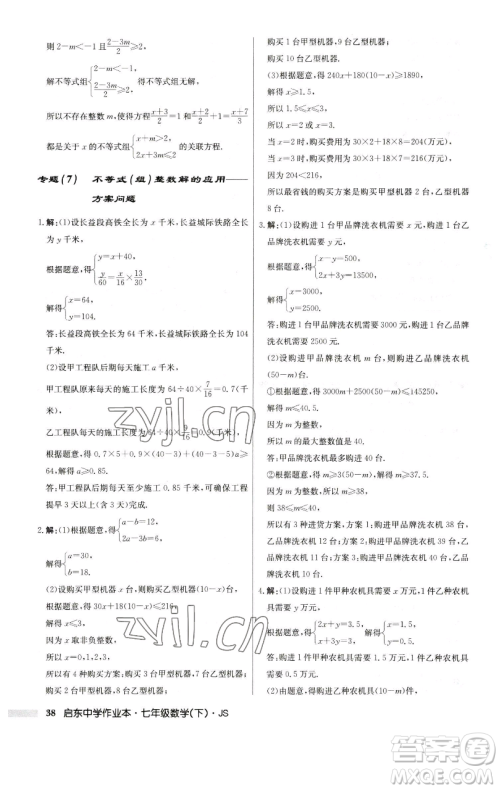 则2-m<-1且2-3m/2≥2,
解不等式组{2-m<-1, 2-3m/2≥2,得不等式组无解.
所以不存在整数m,使得方程x+3/2=1和x+2/2+1=x+7/3
都是关于x的不等式组{x+m>m, 2x+3≤3m的关联方程.
专题(7) 不等式(组)整数解的应用——
方案问题
1.解:(1)设长益段高铁全长为x千米,长益城际铁路全长
为y千米,
根据题意,得{x=y+40, y/60=x/16×13/30,
解得{x=64, y=104.
答:长益段高铁全长为64千米,长益城际铁路全长为104
千米.
(2)设甲工程队后期每天施工a千米,
甲工程队原来每天的施工长度为64÷40×7/16=0.7(千
米),
乙工程队每天的施工长度为64÷40×9/16=0.9(千米),
根据题意,得0.7×5+0.9×(40-3)+(40-3-5)a≥
64,解得a≥0.85.
答:甲工程队后期每天至少施工0.85千米,可确保工程
提早3天以上(含3天)完成.
2.解:(1)根据题意,得{a-b=12, 3b-2a=6,
解得{a=30, b=18.
(2)设购买甲型机器x台,则购买乙型机器(10-x)台,
根据题意,得30x+18(10-x)≤216,
解得x≤3,
因为x取非负整数,
所以x=0,1,2,3.
所以有4种购买方案:购买10台乙型机器;
38 启东中学作业本·七年级数学(下)·JS
购买1台甲型机器,9台乙型机器;
(3)根据题意,得240x+180(10-x)≥1890,
解得x≥1.5,
所以1.5≤x≤3,
所以x=2或x=3.
当x=2时,购买费用为30×2+18×8=204(万元),
当x=3时,购买费用为30×3+18×7=216(万元),
因为204<216,
所以最省钱的购买方案是购买2台甲型机器,乙型机器
8台.
3.解:(1)设购进1台甲品牌洗衣机需要x元,购进1台乙
品牌洗衣机需要y元,
根据题意,得{x-y=500, 2x+3y=13500,
解得{x=3000, y=2500.
答:购进1台甲品牌洗衣机需要3000元,购进1台乙品
牌洗衣机需要2500元.
(2)设购进甲品牌洗衣机m台,则购进乙品牌洗衣机
(50-m)台.
①根据题意,得3000m+2500(50-m)≤145250,
解得m≤40.5.
因为m为整数,
所以m的最大值为40.
答:甲品牌洗衣机最多购进40台.
②根据题意,得m≥3(50-m),解得m≥37.5.
因为m为整数,
所以m=38,39,40,
所以有3种进货方案,方案1:购进甲品牌洗衣机38台,
乙品牌洗衣机12台;方案2:购进甲品牌洗衣机39台,
乙品牌洗衣机11台;方案3:购进甲品牌洗衣机40台,
乙品牌洗衣机10台.
4.解:(1)设购进1件甲种农机具需要x万元,1件乙种农
机具需要y万元,
根据题意,得{2x+y=3.5, x+3y=3,解得{x=1.5, y=0.5.
答:购进1件甲种农机具需要1.5万元,1件乙种农机具
需要0.5万元.
(2)由题意,得购进甲种农机具m件,购进乙种农机具
zyjl.cn
zyjl.cn
答案圈
MXQE.COM